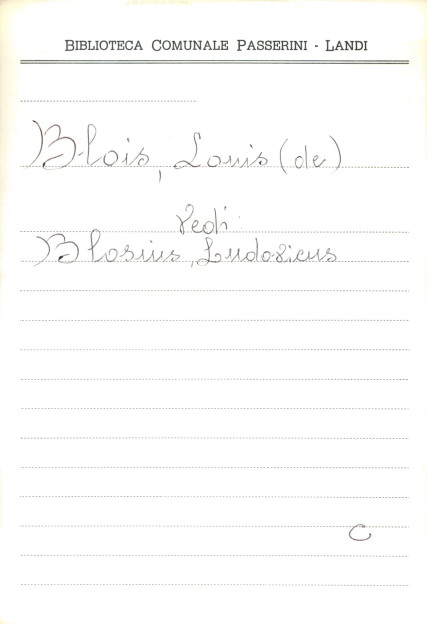 BIBLIOTECA COMUNALE PASSERINI - LANDI
Blois, Louis (de)
vedi
Blosius, Ludovicus
C